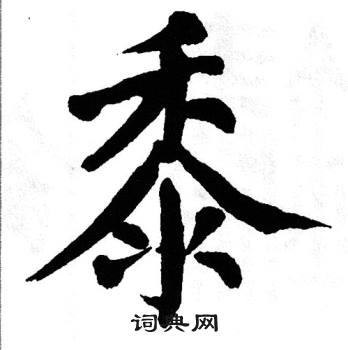 黍
词典网